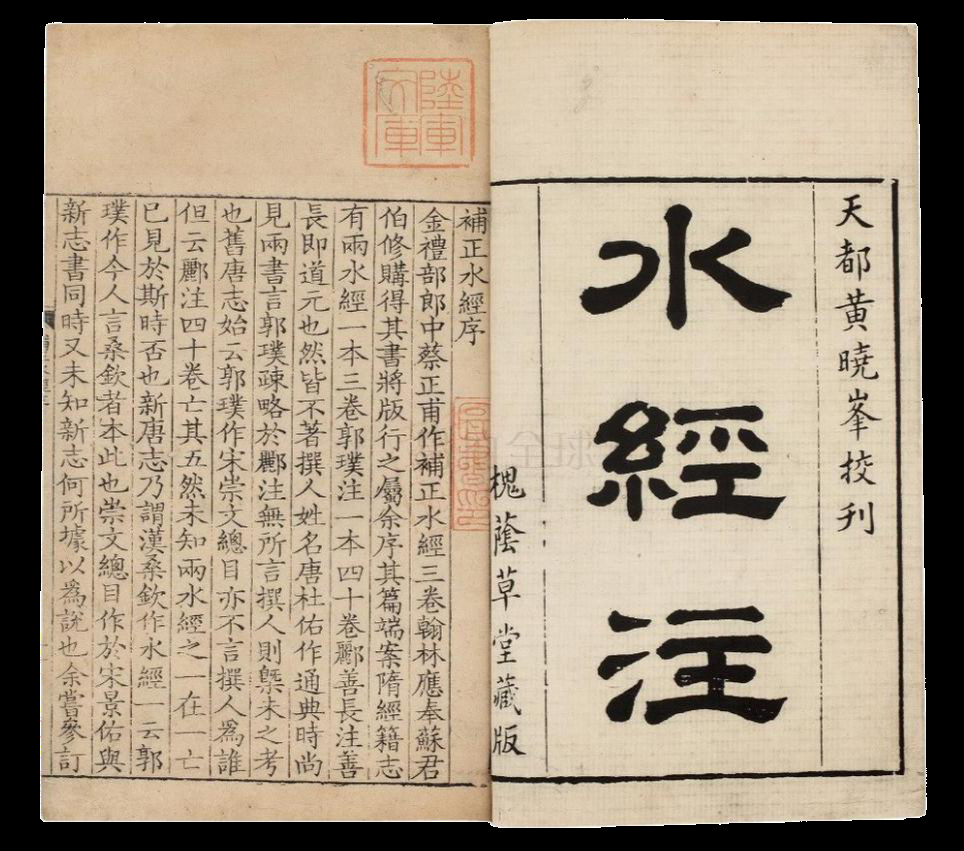 天都黄曉峯挍刋
水經注
槐蔭草堂藏版
補正水經序
金禮部郎中蔡正甫作補正水經三卷翰林應奉蘇君
伯修購得其書將版行之屬余序其篇端案隋經籍志
有兩水經一本三卷郭璞注一本四十卷酈善長注善
長即道元也然皆不著撰人姓名唐杜佑作通典時尚
見兩書言郭璞疎略於酈注無所言撰人則槩未之考
也舊唐志始云郭璞作宋崇文總目亦不言撰人爲誰
但云酈注四十卷亡其五然未知兩水經之一在一亡
已見於斯時否也新唐志乃謂漢桑欽作水經一云郭
璞作今人言桑欽者本此也崇文總目作於宋景佑與
新志書同時又未知新志何所據以爲說也余嘗參訂